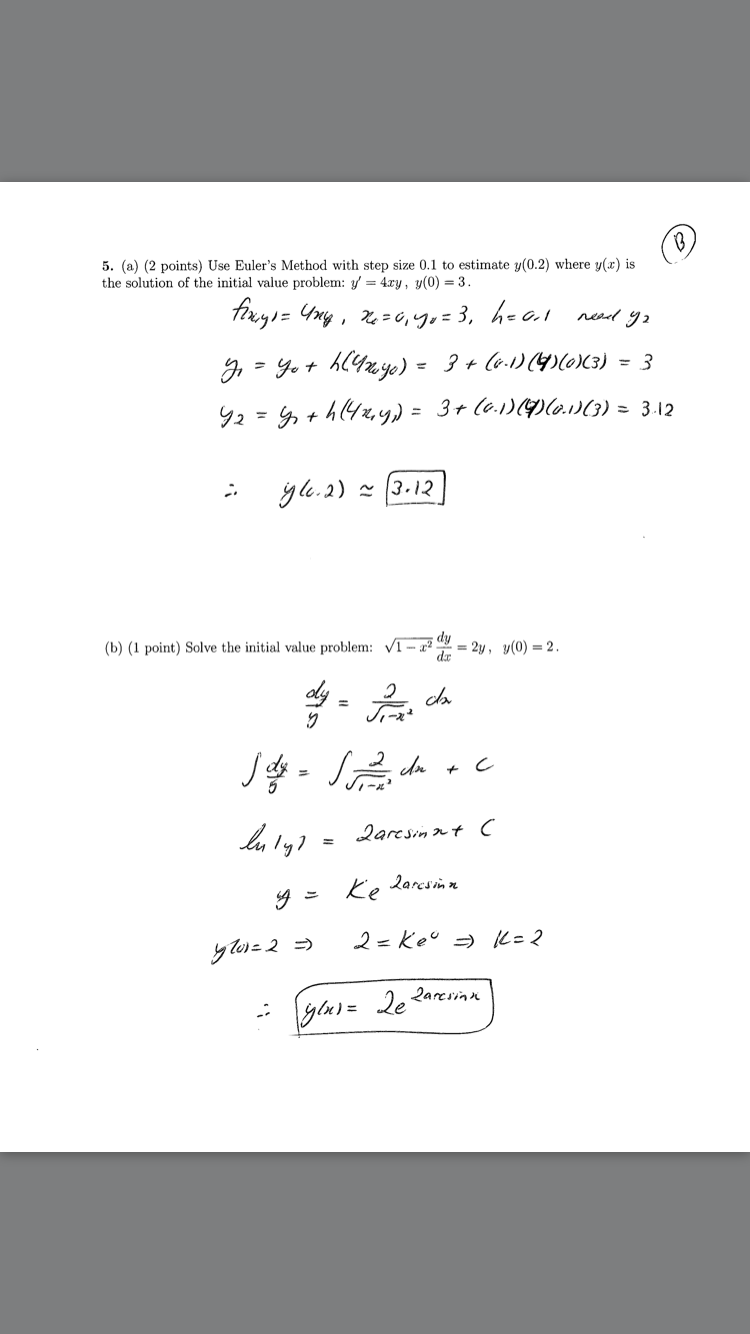 B
5. (a) (2 points) Use Euler's Method with step size 0.1 to estimate y(0.2) where y(x) is
the solution of the initial value problem: y′ = 4xy , y(0) = 3 .
f(x,y) = 4xy , x₀ = 0, y₀ = 3, h = 0.1 need y₂
y₁ = y₀ + h(4x₀y₀) = 3 + (0.1)(4)(0)(3) = 3
y₂ = y₁ + h(4x₁y₁) = 3 + (0.1)(4)(0.1)(3) = 3.12
∴ y(0.2) ≈ 3.12
(b) (1 point) Solve the initial value problem: √(1 − x²) dy/dx = 2y , y(0) = 2 .
dy/y = 2/√(1-x²) dx
∫ dy/y = ∫ 2/√(1-x²) dx + C
ln|y| = 2arcsin x + C
y = Ke^(2arcsin x)
y(0) = 2 ⇒ 2 = Ke⁰ ⇒ K = 2
∴ y(x) = 2e^(2arcsin x)